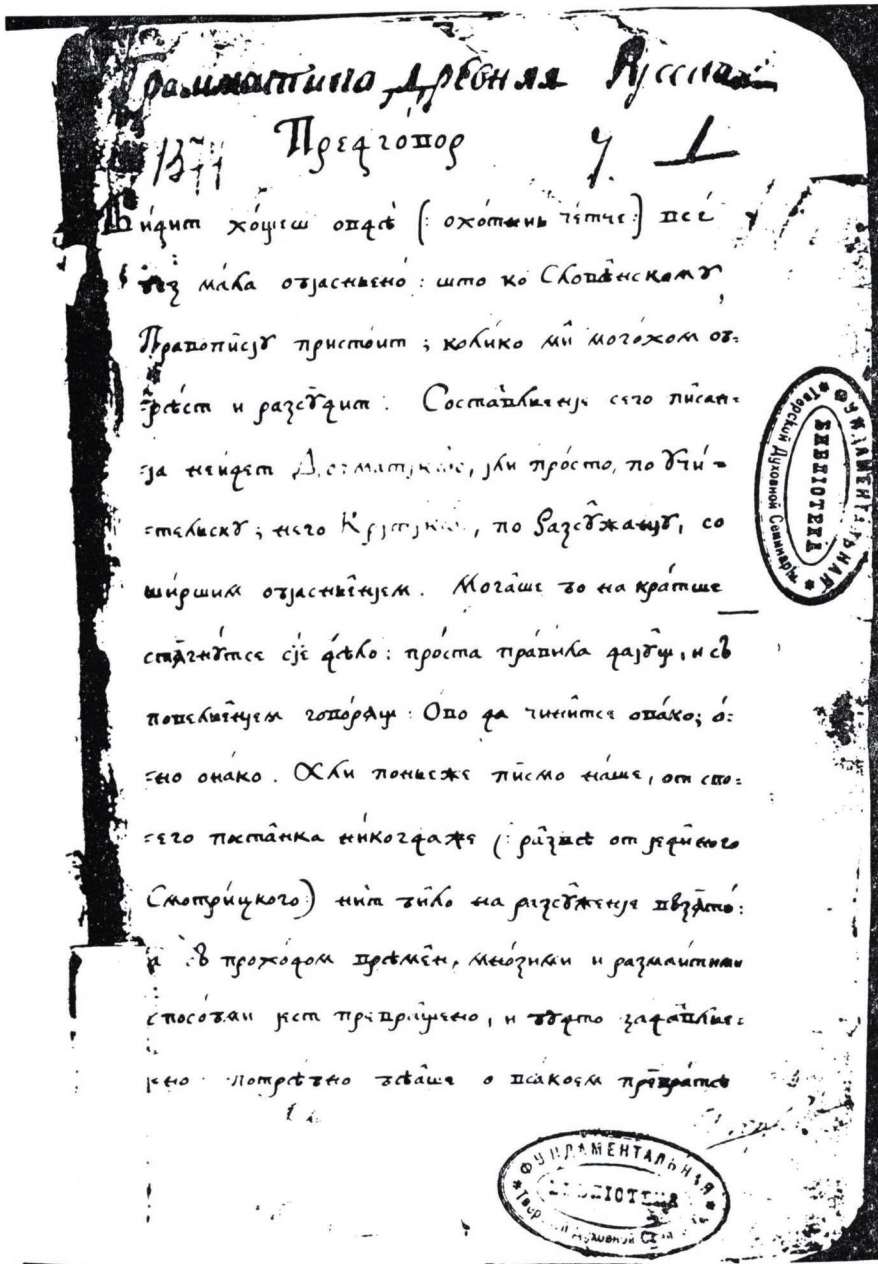 Грамматика Древняя Русская
Предгóвор
1374 У. 1
Ви́дит хо́щеш овдѣ̂ (: охо́тынь че́тче:) все́
из ма́ла објасньено́: што ко Словѣ̂нскому
Правопи̂сју присто́ит; коли́ко ми̂ могóхом об=
=рѣ́ст и разсу̂дит. Соста̂вльенје сего̀ пи̂сан=
=ја неи́дет Догмати́чко, јли про́сто, по Учи́=
=тельску; него Крити́чко, по Разсу̂жанју, со
ши́ршим објасньêнјем. Мога̂ше бо на кра́тше
стѧ̂гнутсе сје́ дѣ́ло: про́ста пра́вила дају̂щ, и съ
повельêнјем говóрящ: Ово да чини̂тсе ова́ко; о́=
=но она́ко. Али поньеже пи̂смо на́ше, от сво=
=его поста̂нка никогдаже (: ра̂звѣ от једи́ного
Смотри́цкого) ни̂т би̂ло на разсу̂женје взя̂то:
а̀ в̾ прохо́дом врѣмêн, мно́зими и разма́итими
спо́соби јест превра̂щено, и бу̂дто задâвлье=
но потрѣ́бно бѣ̂ше о вса́коем превра̂тѣ
ФУНДАМЕНТАЛЬНАЯ
БИБЛІОТЕКА
Тверской Духовной Семинаріи
ФУНДАМЕНТАЛЬНАЯ
БИБЛІОТЕКА
Тверской Духовной Сем